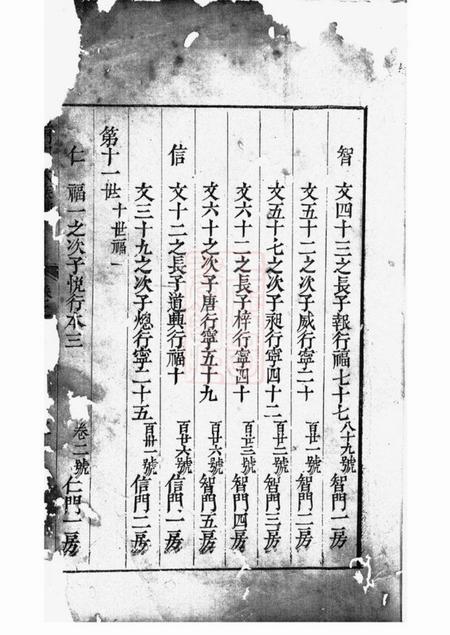 智 文四十三之長子報行福七十七 八十九號 智門一房
文五十二之次子威行寧二十 百廿一號 智門二房
文五十七之次子昶行寧四十二 百廿二號 智門三房
文六十二之長子梓行寧四十 百廿三號 智門四房
文六十之次子唐行寧五十九 百廿六號 智門五房
信 文十二之長子道興行福十 百廿六號 信門一房
文三十九之次子㷓行寧二十五 百卅一號 信門二房
第十一世 十世福一
仁 福一之次子悅行本三 卷二號 仁門一房